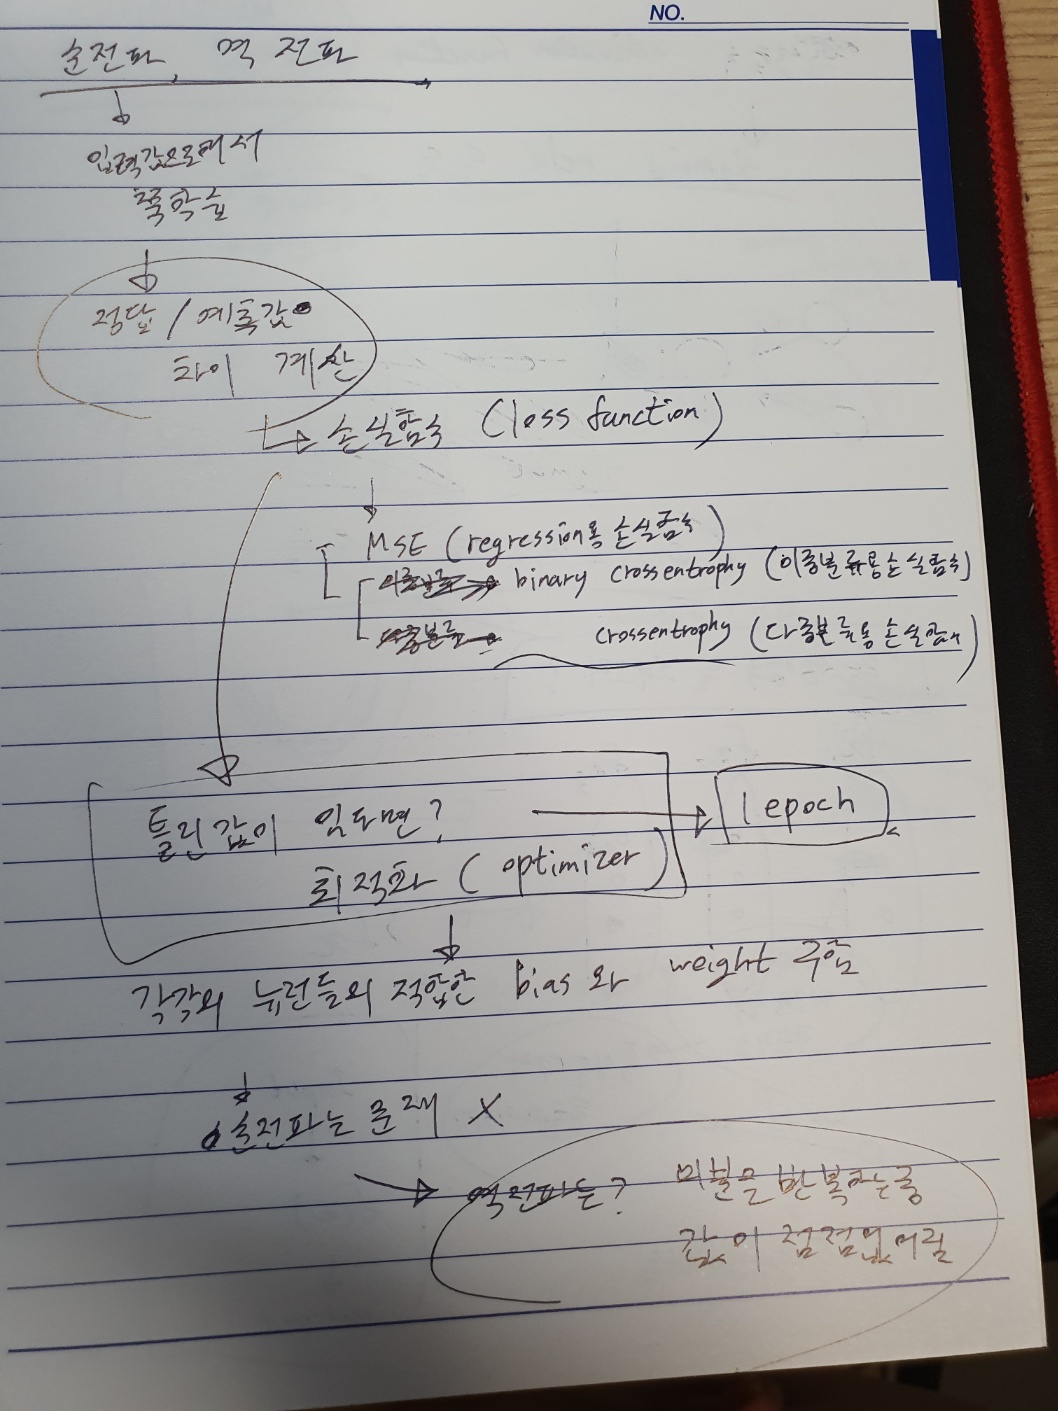 NO.
순전파, 역전파
입력값으로해서
쭉학습
정답 / 예측값
차이 계산
손실함수 (loss function)
MSE (regression용 손실함수)
binary crossentropy (이중분류용손실함수)
crossentropy (다중분류용손실함수)
틀린값이 있다면?
1 epoch
최적화 (optimizer)
각각의 뉴런들의 적합한 bias와 weight 구함
순전파는 문제 X
역전파는? 미분을 반복하는중
값이 점점없어짐